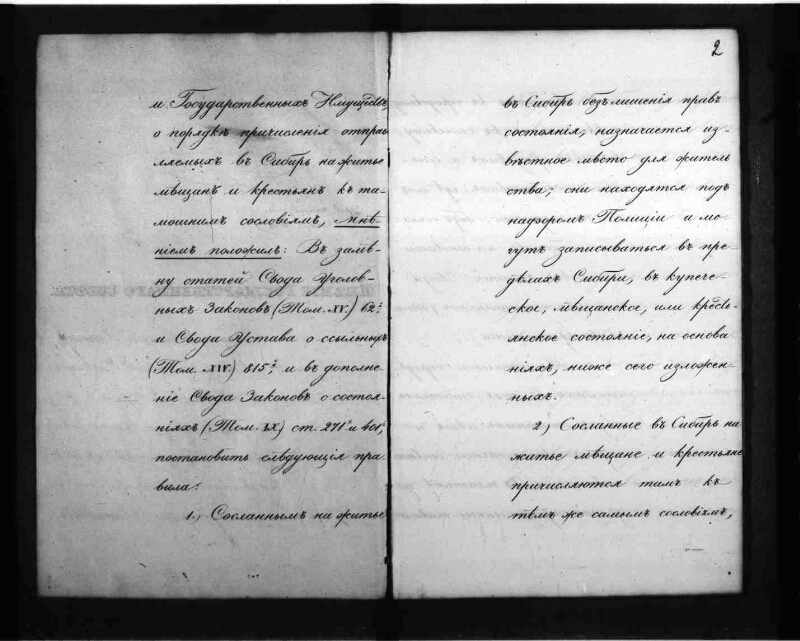 и Государственныхъ Имуществъ
о порядкѣ причисленія отправ
ляемыхъ въ Сибирь на житье
мѣщанъ и крестьянъ къ та-
мошнимъ сословіямъ, мнѣ-
ніемъ положилъ: Въ замѣ-
ну статей Свода Уголов-
ныхъ Законовъ (Том. XV.) 62й
и Свода Устава о ссыльныхъ
(Том. XIV.) 815й, и въ дополне-
ніе Свода Законовъ о состоя-
ніяхъ (Том. IX.) ст. 271й и 401й,
постановить слѣдующія пра-
вила:
1.) Сосланнымъ на житье
2
въ Сибирь безъ лишенія правъ
состоянія, назначается из-
вѣстное мѣсто для житель
ства; они находятся подъ
надзоромъ Полиціи и мо-
гутъ записываться въ пре-
дѣлахъ Сибири, въ купече-
ское, мѣщанское, или кресть-
янское состояніе, на основа
ніяхъ, ниже сего изложен-
ныхъ.
2.) Сосланные въ Сибирь на
житье мѣщане и крестьяне
причисляются тамъ къ
тѣмъ же самымъ сословіямъ,